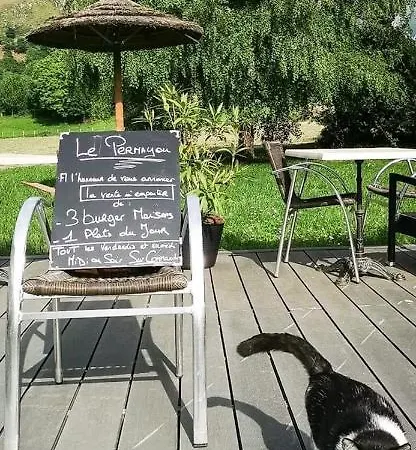 Le Permayou
A l'honneur de vous annoncer
la vente à emporter
de :
- 3 burger Maisons
- 1 Plat du Jour
Tout les Vendredis et Samedi
Midi ou Soir Sur Commande